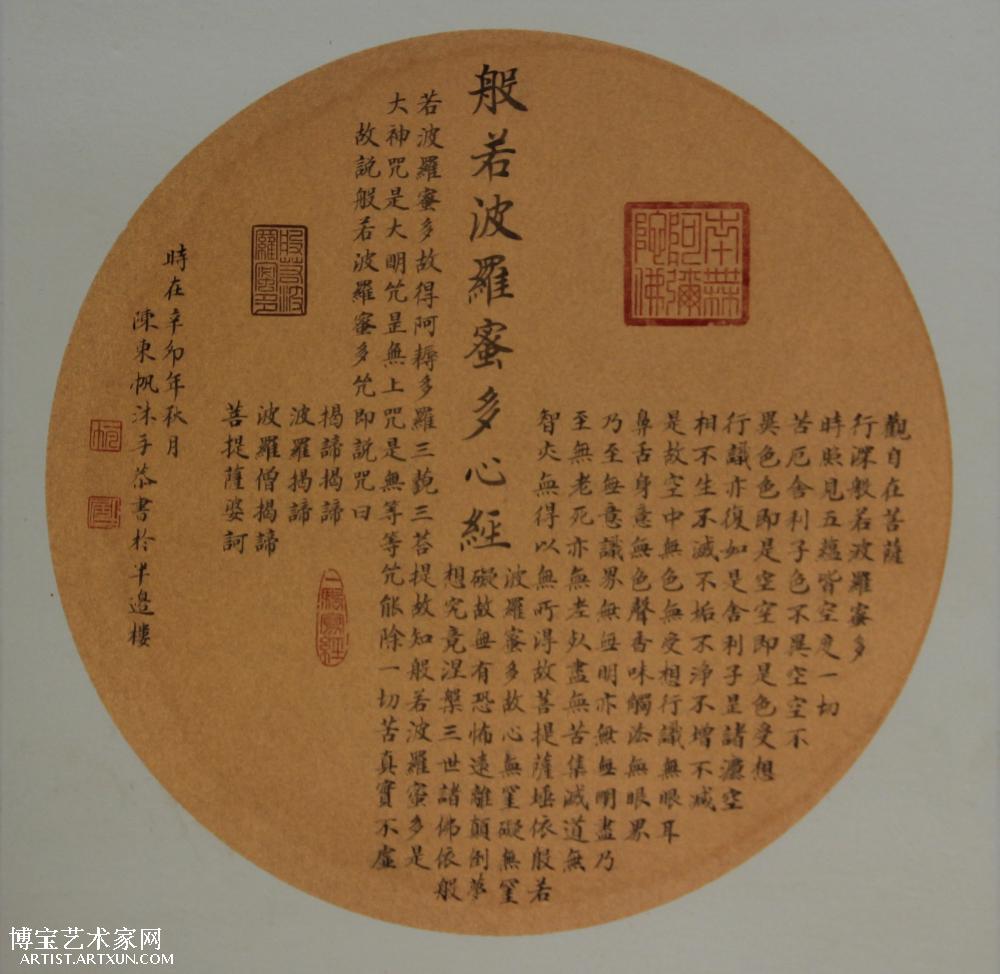 般若波羅蜜多心經
南無阿彌陀佛
觀自在菩薩
行深般若波羅蜜多
時照見五蘊皆空度一切
苦厄舍利子色不異空空不
異色色即是空空即是色受想
行識亦復如是舍利子是諸灋空
相不生不滅不垢不淨不增不减
是故空中無色無受想行識無眼耳
鼻舌身意無色聲香味觸法無眼界
乃至無意識界無無明亦無無明盡乃
至無老死亦無老死盡無苦集滅道無
智亦無得以無所得故菩提薩埵依般若
波羅蜜多故心無罣礙無罣
礙故無有恐怖遠離顛倒夢
想究竟涅槃三世諸佛依般
若波羅蜜多故得阿耨多羅三藐三菩提故知般若波羅蜜多是
大神咒是大明咒是無上咒是無等等咒能除一切苦真實不虛
故説般若波羅蜜多咒即説咒曰
揭諦揭諦
波羅揭諦
波羅僧揭諦
菩提薩婆訶
般若波羅蜜多
時在辛卯年秋月
陳東帆沐手恭書於半邊樓
博宝艺术家网
ARTIST.ARTXUN.COM